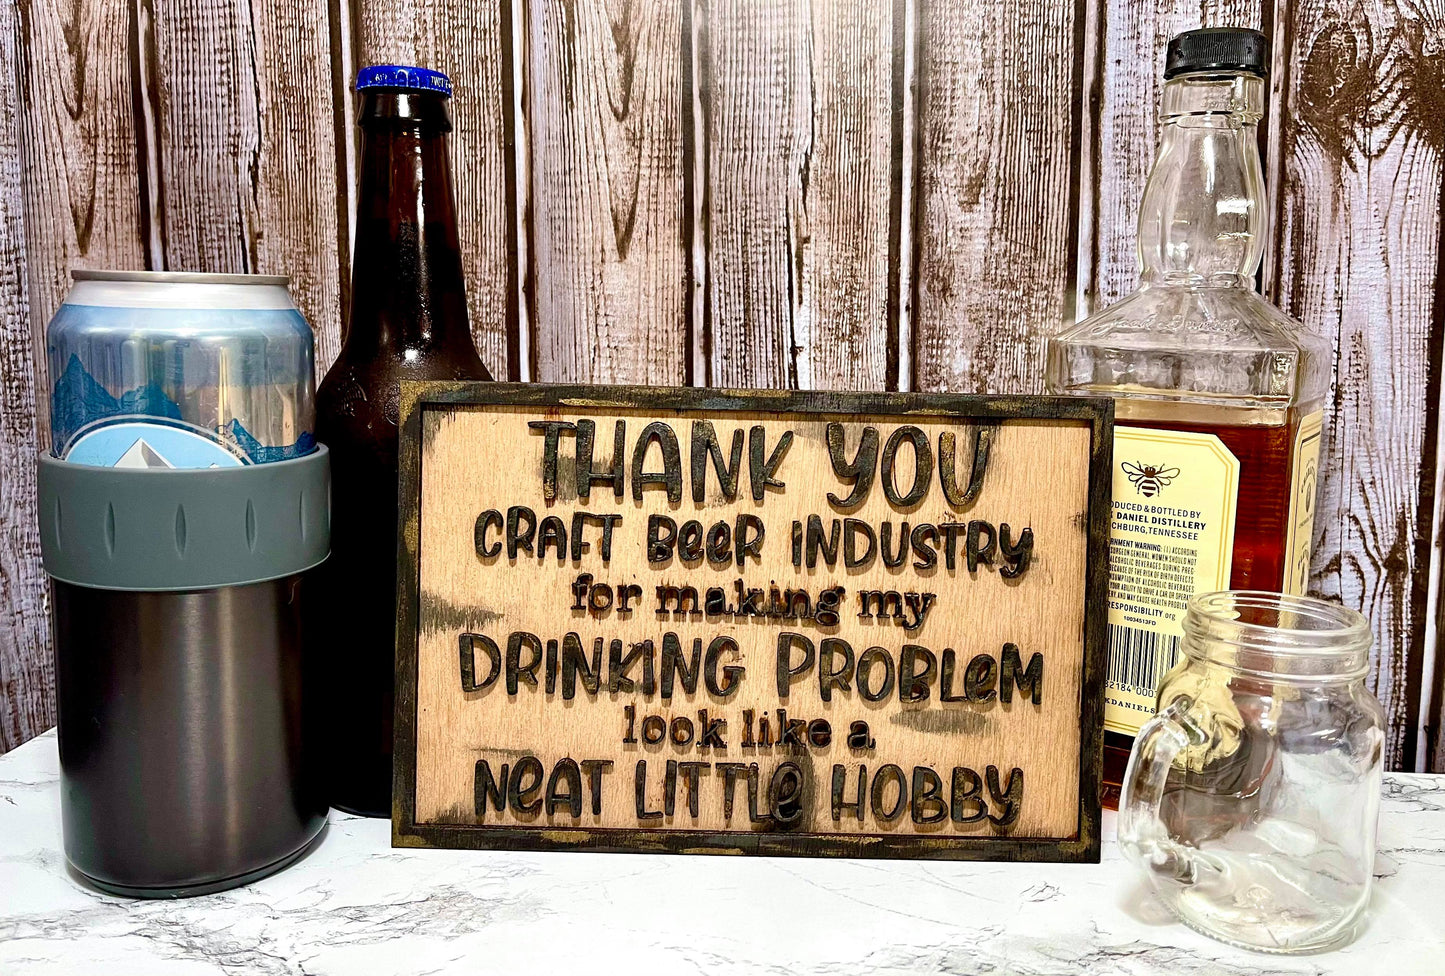 THANK YOU
CRAFT BEER INDUSTRY
for making my
DRINKING PROBLEM
look like a
NEAT LITTLE HOBBY
TWIST
ODUCED & BOTTLED BY
DANIEL DISTILLERY
CHBURG, TENNESSEE
RNMENT WARNING: (1) ACCORDING
SURGEON GENERAL, WOMEN SHOULD NOT
ALCOHOLIC BEVERAGES DURING PREG-
BECAUSE OF THE RISK OF BIRTH DEFECTS.
SUMPTION OF ALCOHOLIC BEVERAGES
YOUR ABILITY TO DRIVE A CAR OR OPERAT
ERY, AND MAY CAUSE HEALTH PROBLEM
RESPONSIBILITY.org
10034513FD
82184 000
KDANIELS